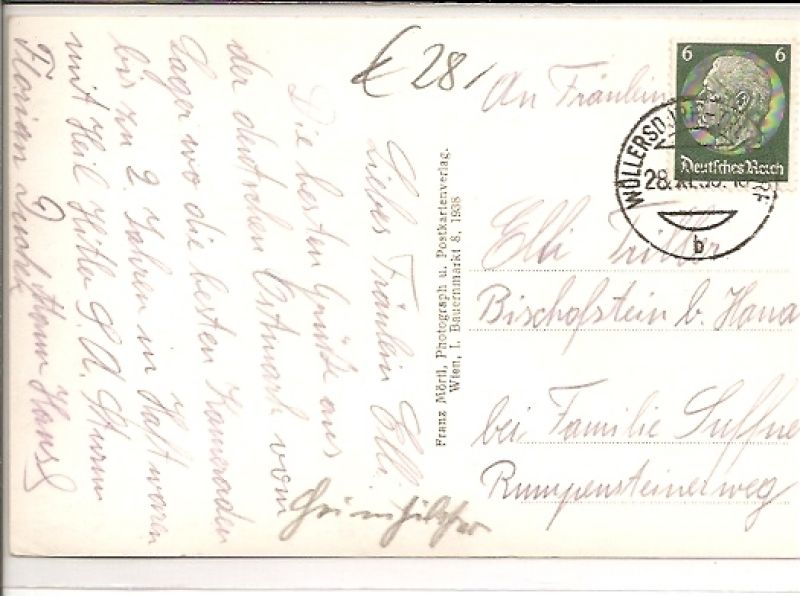 € 28,
Liebes Fräulein Elli.
Die besten Grüße aus
der deutschen Ostmark vom
Lager wo die besten Kamraden
bis zu 2. Jahren in Haft waren
mit Heil Hitler S.A. Sturm
Florian Mann Hansl
Franz Mörtl, Photograph u. Postkartenverlag.
Wien, I. Bauernmarkt 8, 1938
6 6
Deutsches Reich
WÖLLERSDORF
28. XI. 38.
b
An Fräulein
Elli Triller
Bischofstein b.
bei Familie
Rumpensteinerweg